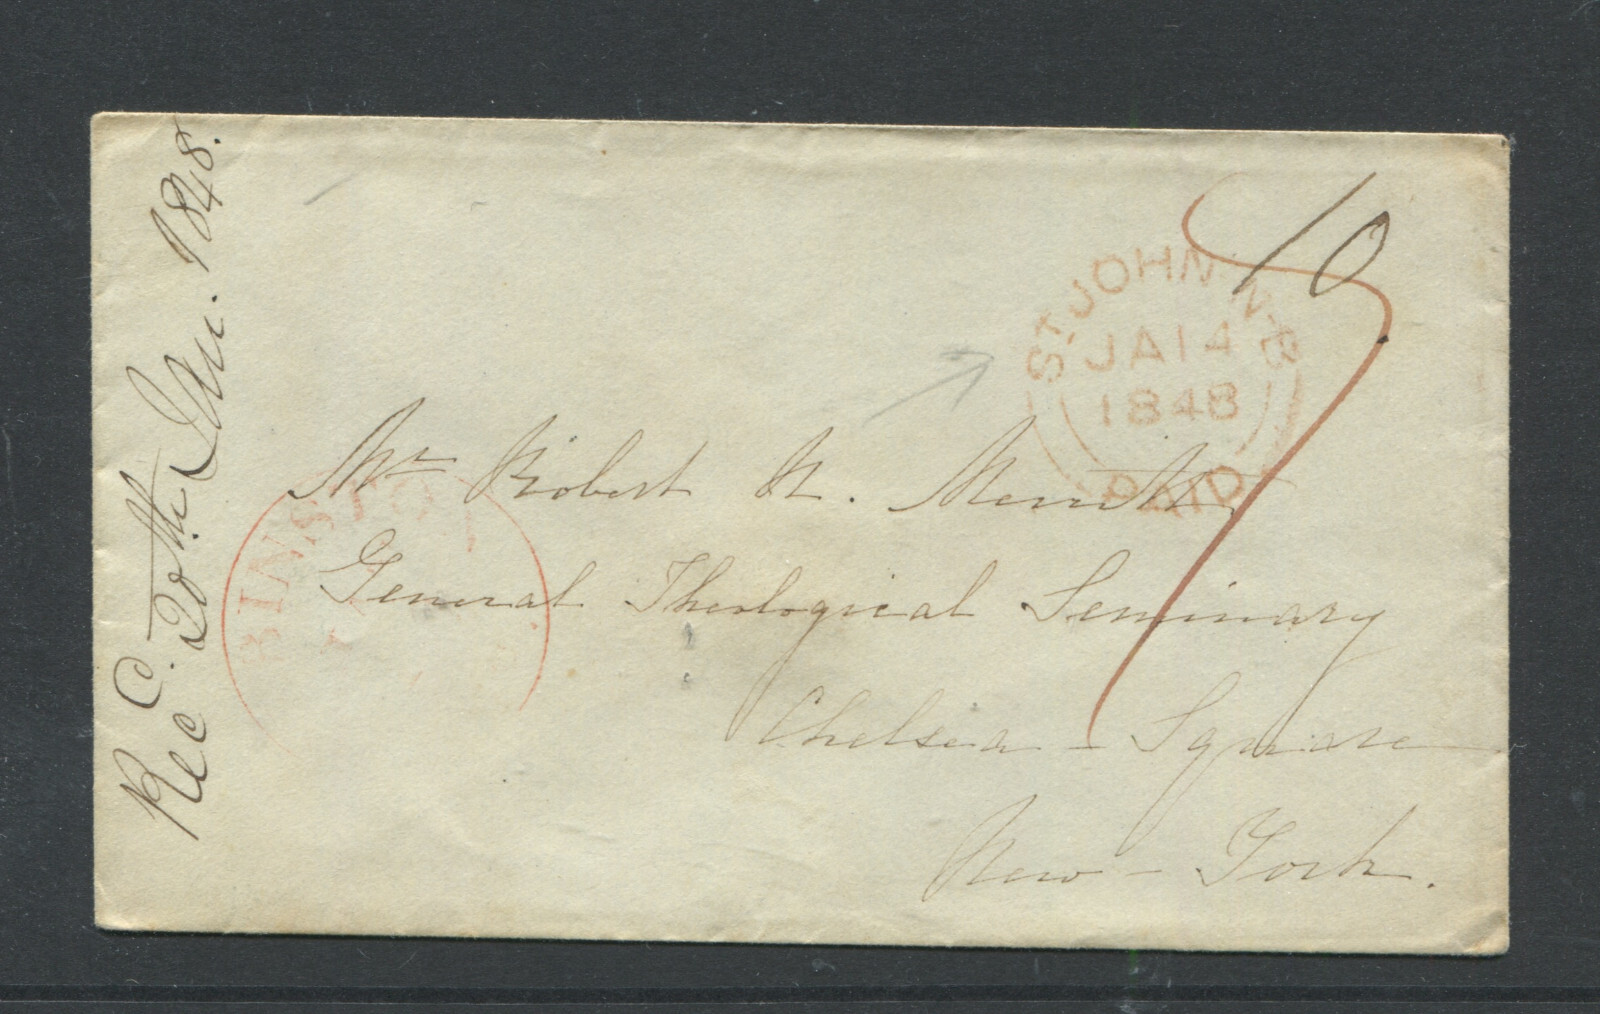 Recd. 20th Jan. 1848.
10
7
ST. JOHN N.B
JA 14
1848
PAID
Mr Robert N. Merritt
General Theological Seminary
Chelsea - Square
New - York.